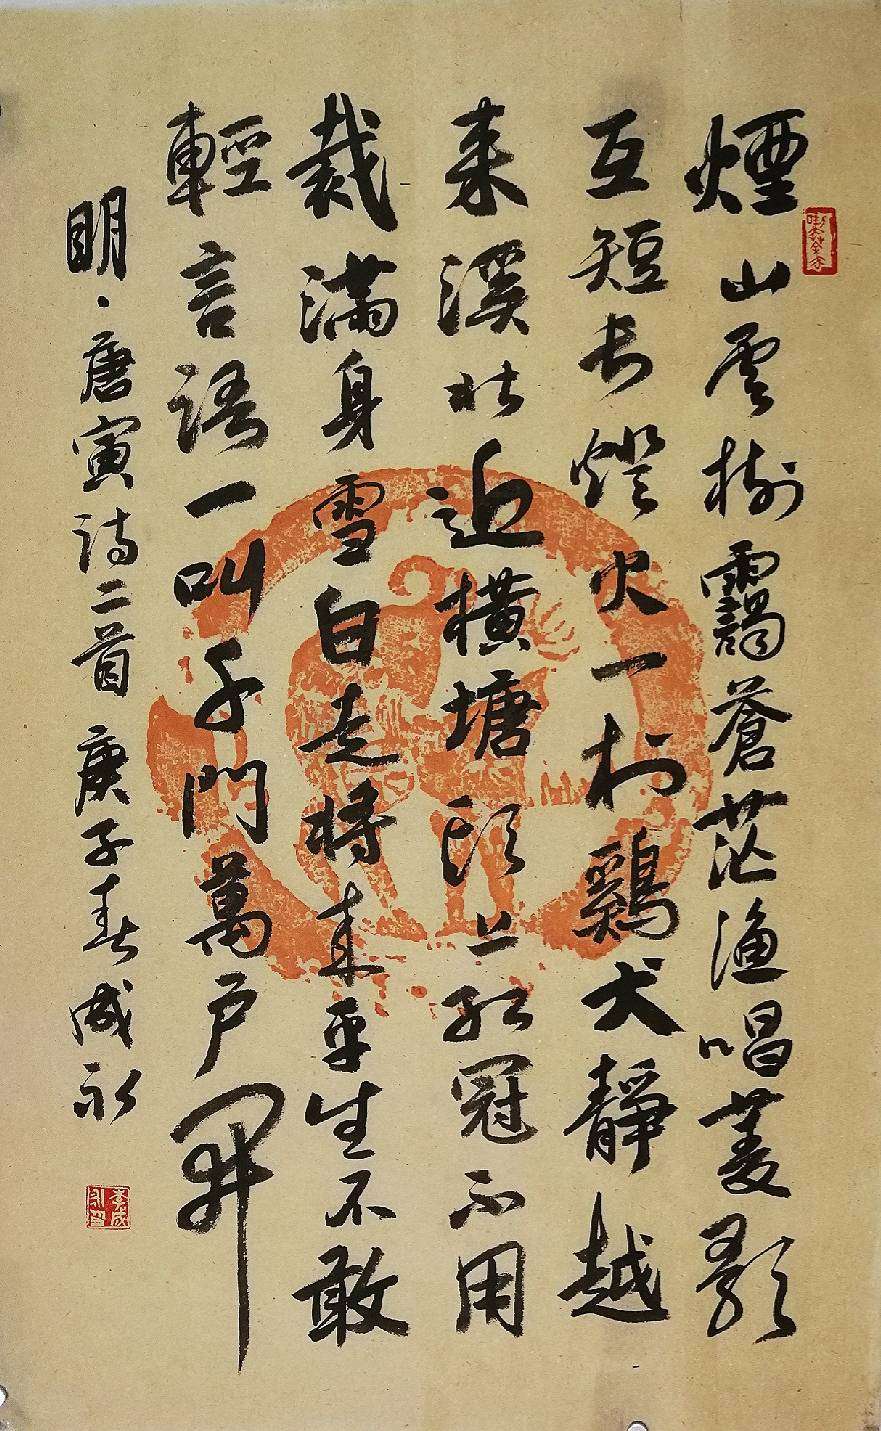 煙山雲樹靄蒼茫漁唱菱歌
互短長燈火一村鷄犬靜越
来溪北近橫塘頭上紅冠不用
裁滿身雪白走將来平生不敢
輕言語一叫千門萬戶開
明·唐寅詩二首 庚子春 成永
李成永印